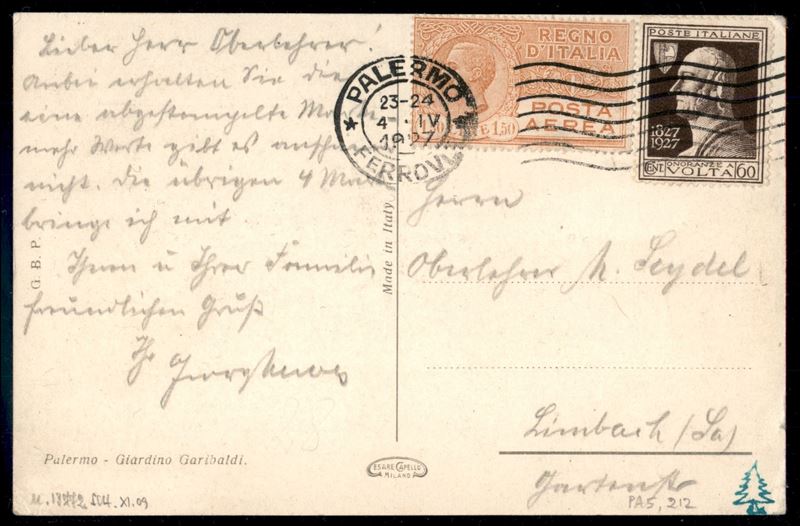 Lieber Herr Oberlehrer!
Anbei erhalten Sie die
eine abgestempelte
mehr Werte gibt es
nicht. Die übrigen 4
bringe ich mit.
Ihnen u Ihrer Familie
freundlichen Gruß
Ihr
G. B. P.
Palermo - Giardino Garibaldi.
XI.09
Made in Italy
CESARE CAPELLO
MILANO
PALERMO
23-24
4 - IV
1927
FERROVIA
REGNO
D'ITALIA
POSTA
AEREA
1,50
POSTE ITALIANE
1827
1927
ONORANZE A
CENT. VOLTA 60
Herrn
Oberlehrer M. Seydel
Limbach (Sa)
Gartenstr
PA5, 212